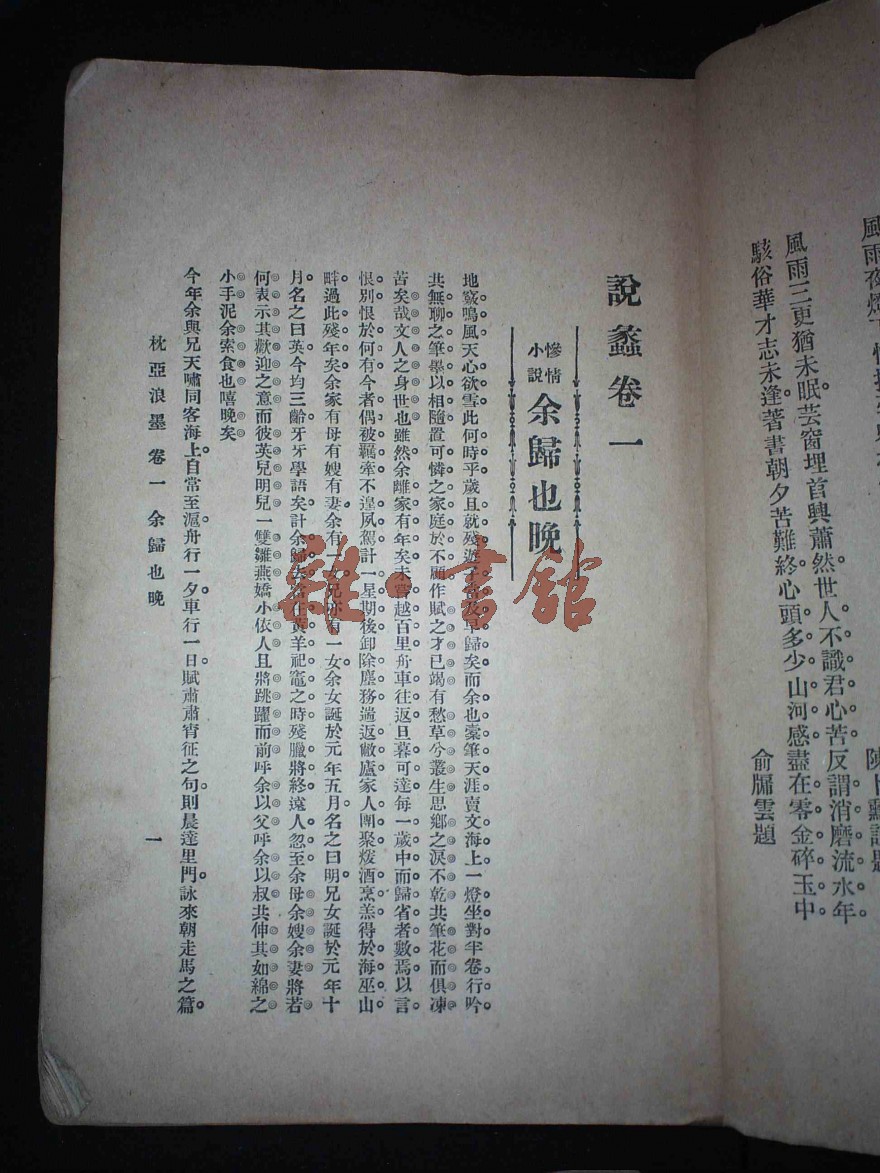 風雨三更猶未眠芸窗埋首興蕭然世人不識君心苦反謂消磨流水年
駭俗華才志未逢著書朝夕苦難終心頭多少山河感盡在零金碎玉中
俞牖雲題
說蠡卷一
慘情小說 余歸也晚
地竅鳴風天心欲雪此何時乎歲且就殘遊子皆及早歸矣而余也橐筆天涯賣文海上一燈坐對半卷行吟
共無聊之筆墨以相隨置可憐之家庭於不顧作賦之才已竭有愁草兮叢生思鄉之淚不乾共筆花而俱凍
苦矣哉文人之身世也雖然余離家有年矣未嘗越百里舟車往返旦暮可達每一歲中而歸省者數焉以言
恨別恨於何有今者偶被羈牽不遑夙駕計一星期後卸除塵務遄返敝廬家人團聚煖酒烹羔得於海巫山
畔過此殘年矣余家有母有嫂有妻余有一女兄亦有一女余女誕於元年五月名之曰明兄女誕於元年十
月名之曰英今均三齡牙牙學語矣計余歸去當在黃羊祀竈之時殘臘將終遠人忽至余母余嫂余妻將若
何表示其歡迎之意而彼英兒明兒一雙雛燕嬌小依人且將跳躍而前呼余以父呼余以叔共伸其如綿之
小手泥余索食也嘻晚矣
今年余與兄天嘯同客海上自常至滬舟行一夕車行一日賦肅肅宵征之句則晨達里門詠來朝走馬之篇
枕亞浪墨 卷一 余歸也晚 一
雜·書館